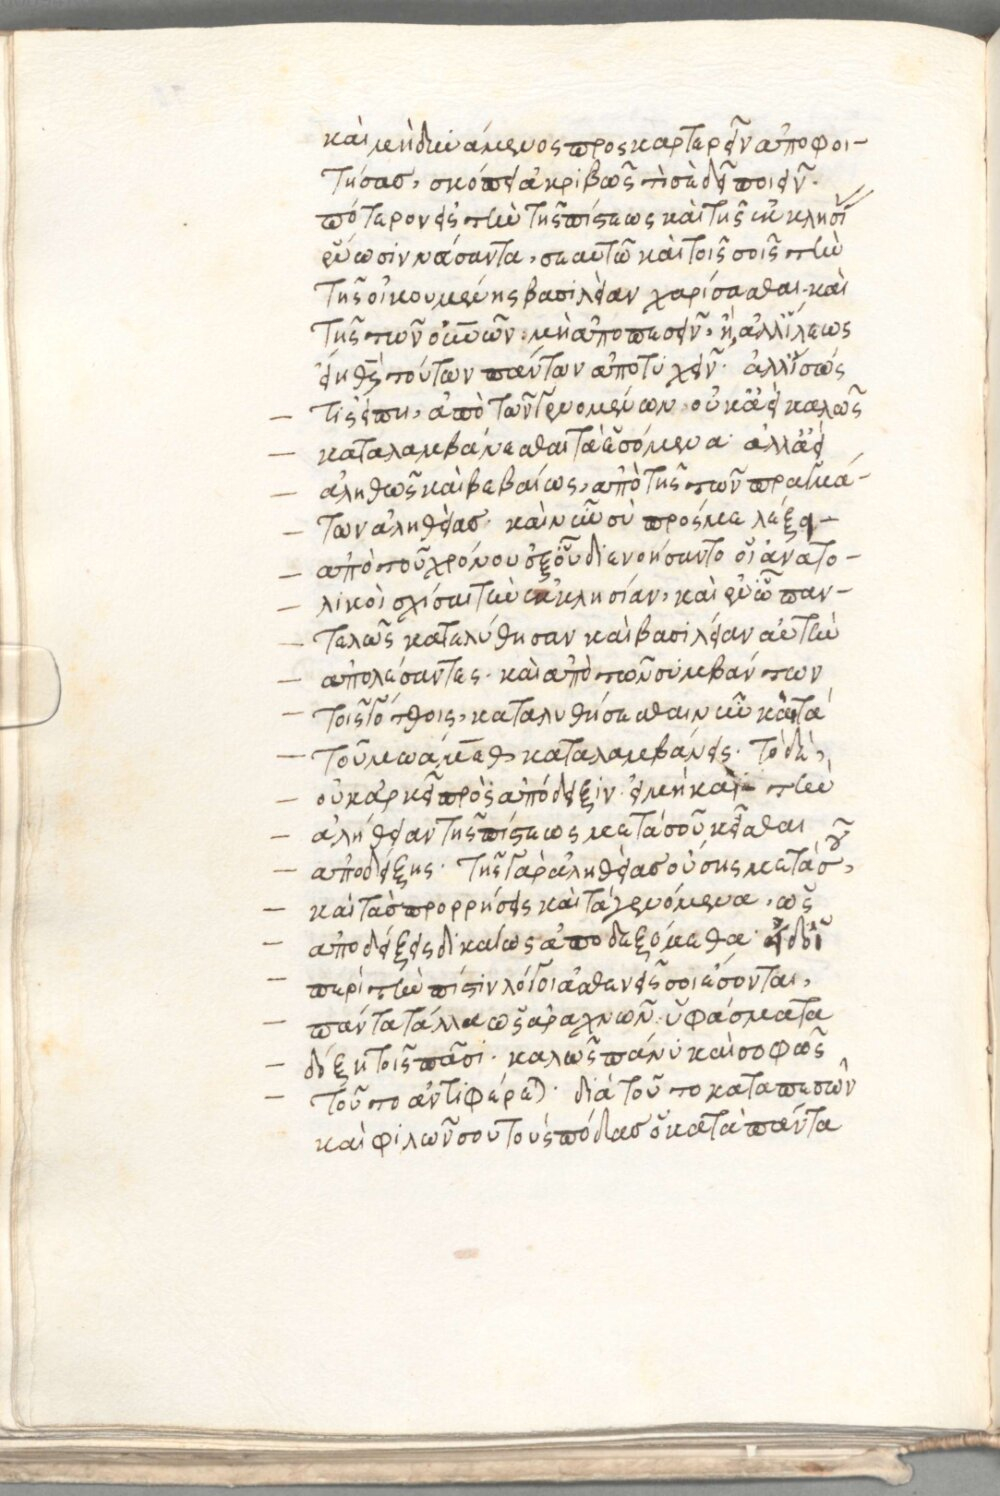 καὶ μὴ δυνάμενος προσκαρτερεῖν ἀποφοι-
τήσας, σκόπει ἀκριβῶς τί σὲ δεῖ ποιεῖν·
πότερον εἰς τὴν τῆς πίστεως καὶ τῆς ἐκκλησί
ἕνωσιν σεαυτῷ καὶ τοῖς σοῖς τὴν
τῆς οἰκουμένης βασιλείαν χαρίσασθαι· καὶ
τῆς τῶν οὐνῶν μὴ ἀποπεσεῖν· ἢ ἄλλως
τούτων πάντων ἀποτυχεῖν· ἀλλ' ἴσως
τὶς εἴπῃ, ἀπὸ τῶν γενομένων, οὐκ ἀεὶ καλῶς
καταλαμβάνεσθαι τὰ ἐσόμενα· ἀλλ' ἀεὶ
ἀληθῶς καὶ βεβαίως, ἀπὸ τῆς τῶν πραγμά-
των ἀληθείας· καὶ νῦν σὺ πρός με λέξεις
ἀπὸ τοῦ χρόνου ἐξ οὗ διενοήσαντο οἱ ἀνατο-
λικοὶ σχίσαι τὴν ἐκκλησίαν, καὶ ἐν ᾧ παν-
τελῶς κατελύθησαν καὶ βασιλείαν αὐτὴν
ἀπολέσαντες· καὶ ἀπὸ τῶν συμβάντων
τοῖς Γότθοις, καταλυθήσεσθαι νῦν κατὰ
τοῦ μωάμεθ καταλαμβάνεις· τὸ δὲ,
οὐκ ἀρκεῖ πρὸς ἀπόδειξιν· εἰ μὴ καὶ τὴν
ἀλήθειαν τῆς πίστεως μετὰ σοῦ κεῖσθαι
ἀποδείξῃς· τῆς γὰρ ἀληθείας οὔσης μετὰ σοῦ,
καὶ τὰς προρρήσεις καὶ τὰ γενόμενα, ὡς
ἀποδείξεις δικαίως ἀποδεξόμεθα· εἰ δ' οἱ
περὶ τὴν πίστιν λόγοι ἀσθενεῖς σοι ἔσονται,
πάντα τἄλλα ὡς ἀραχνῶν ὑφάσματα
δόξῃ τοῖς πᾶσι· καλῶς πάνυ καὶ σοφῶς
τοῦτο ἀντιφέρεται· διὰ τοῦτο καταπεσὼν
καὶ φιλῶν σου τοὺς πόδας ὁ κατὰ πάντα